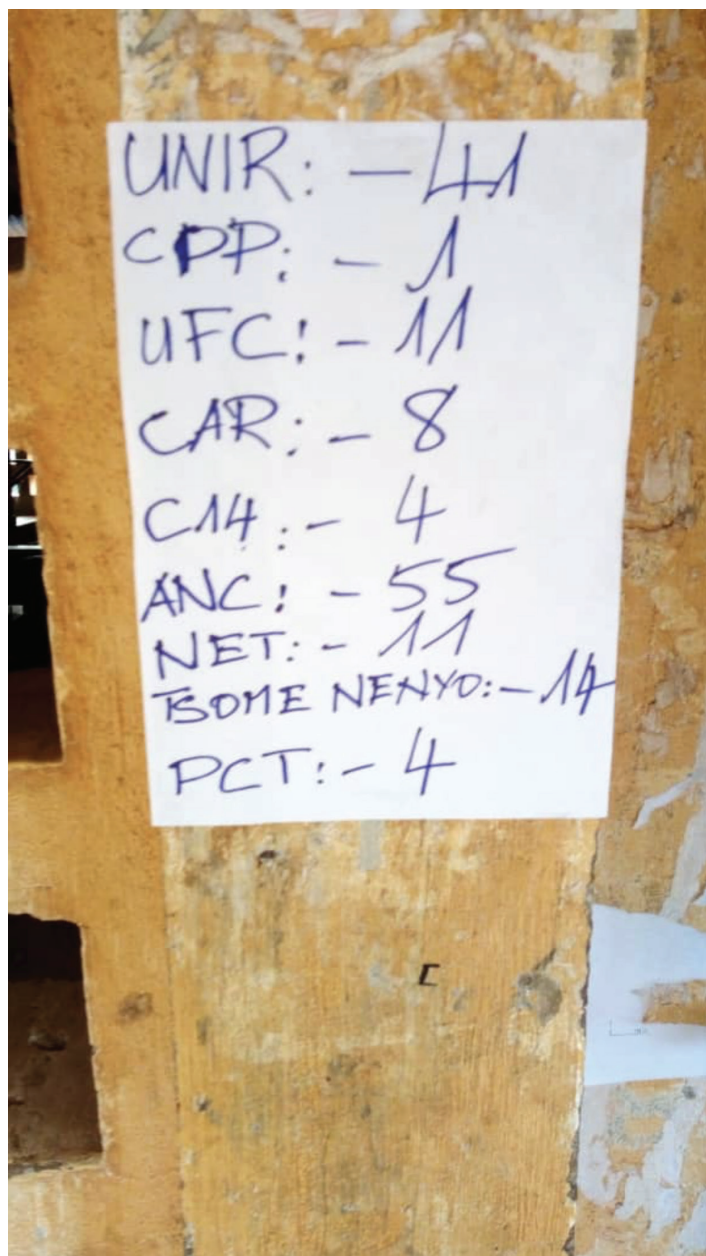 UNIR: - 41
CPP: - 1
UFC: - 11
CAR: - 8
C14: - 4
ANC: - 55
NET: - 11
TSOME NENYO: - 14
PCT: - 4